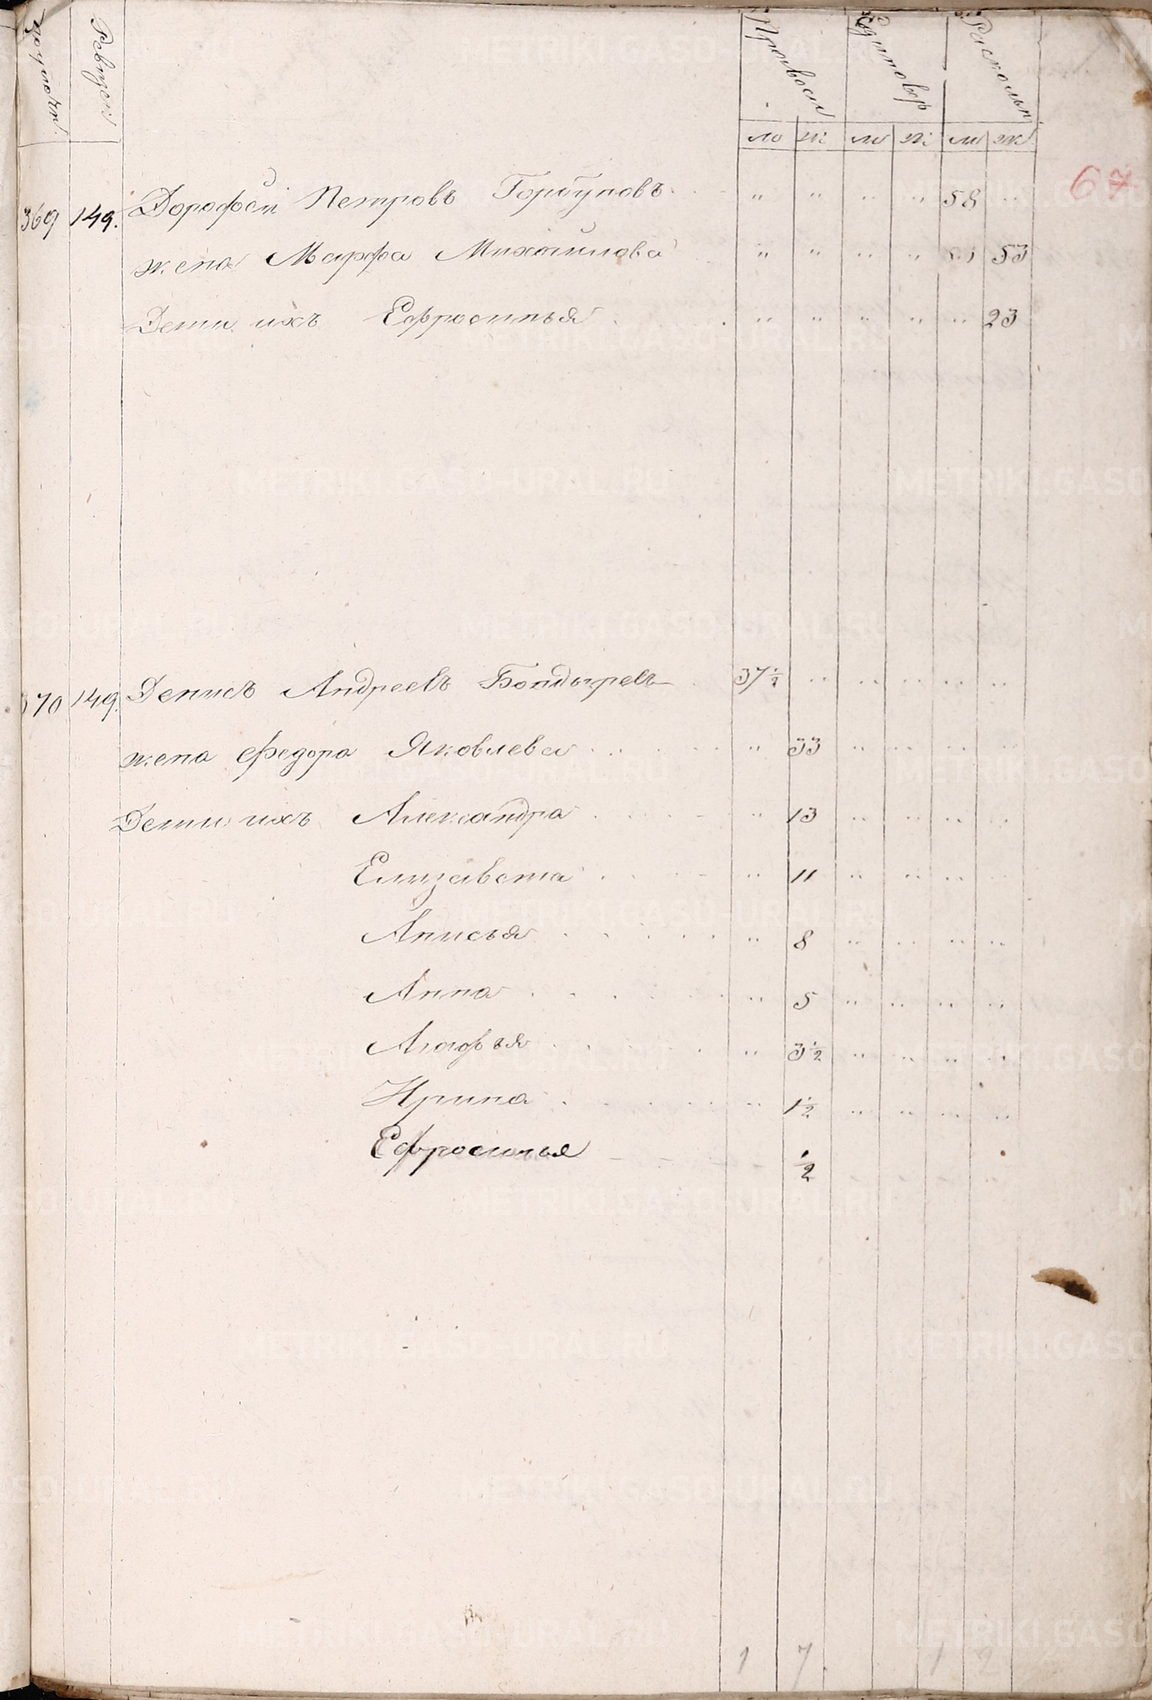 Ревизск Православ Единовер Раскольн
м ж м ж м ж
67
369 149. Дорофей Петровъ Горбуновъ " " " " 58 "
жена Марфа Михайлова " " " " 53
Дети ихъ Ефросинья " " " " " 23
370 149. Денисъ Андреевъ Бондыревъ 37½ " " " " "
жена Федора Яковлева " 33 " " " "
Дети ихъ Александра " 13 " " "
Елизавета " 11 " " "
Анисья " 8 " " " "
Анна " 5 " " " "
Марфа " 3½ " " " "
Ирина " 1½ " " " "
Ефросинья ½
1 7 1 2
METRIKI.GASO-URAL.RU